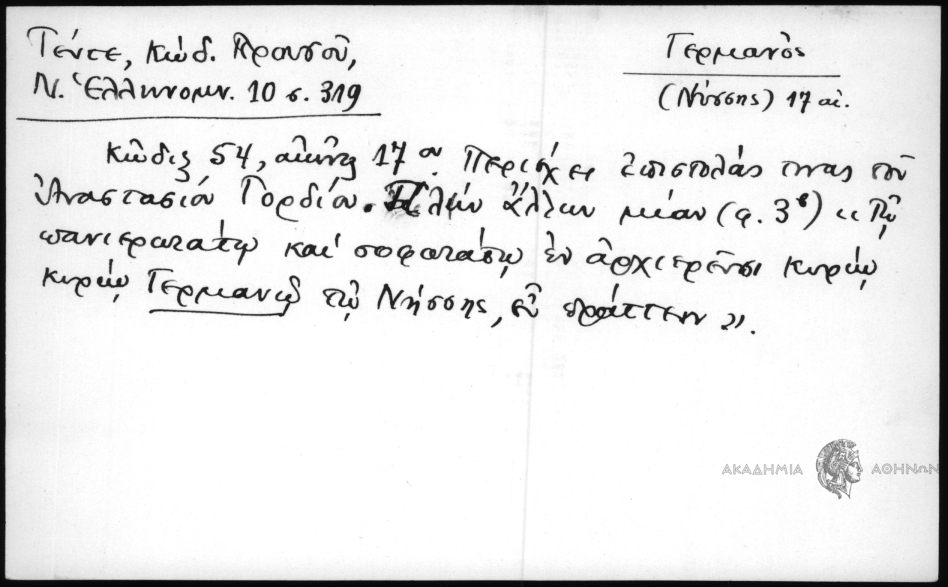 Γερμανὸς
(Νύσσης) 17 αἰ.
Τέντε, Κώδ. Προυσοῦ,
Ν. Ἑλληνομν. 10 σ. 319
Κῶδιξ 54, 17ου. Περιέχει ἐπιστολάς τινας τοῦ
Ἀναστασίου Γορδίου. Πλὴν ἄλλων μίαν (φ. 3β) « Τῷ
πανιερωτάτῳ καὶ σοφωτάτῳ ἐν ἀρχιερεῦσι κυρίῳ
κυρίῳ Γερμανῷ τῷ Νύσσης, εὖ πράττειν ».
ΑΚΑΔΗΜΙΑ ΑΘΗΝΩΝ